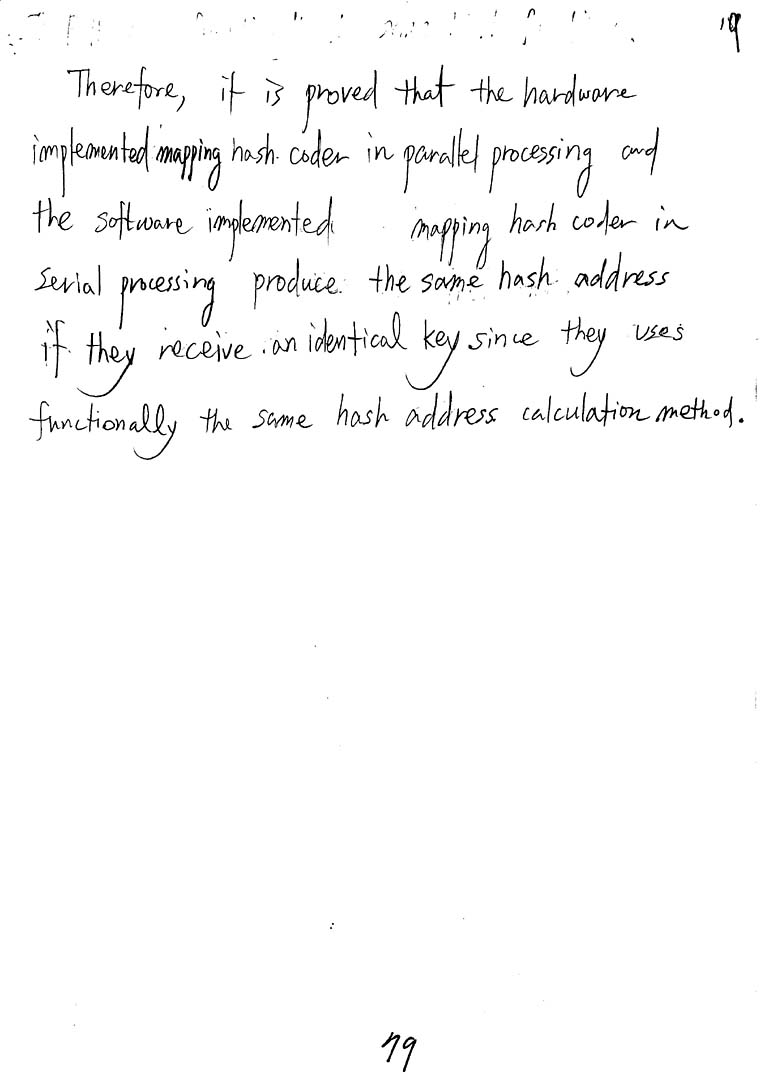 19
Therefore, it is proved that the hardware
implemented mapping hash coder in parallel processing and
the software implemented mapping hash coder in
serial processing produce the same hash address
if they receive an identical key since they uses
functionally the same hash address calculation method.
79